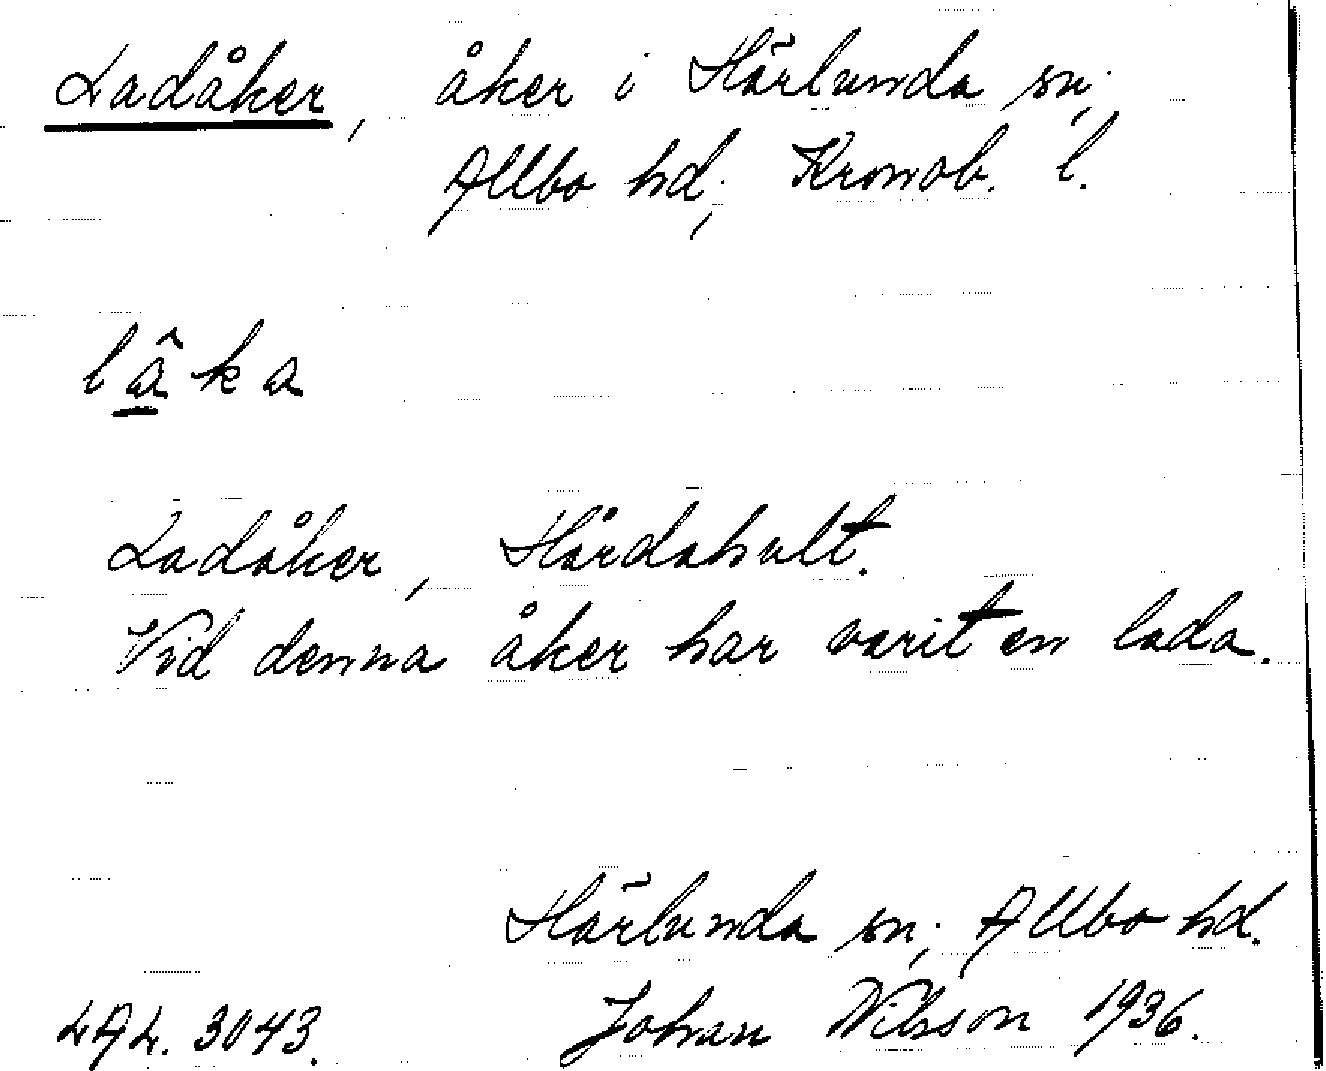 Ladåker, åker i Härlunda sn.,
Allbo hd., Kronob. l.
lâka
Ladåker, Hårdahult.
Vid denna åker har varit en lada.
Härlunda sn., Allbo hd.
LAL. 3043. Johan Nilsson 1936.